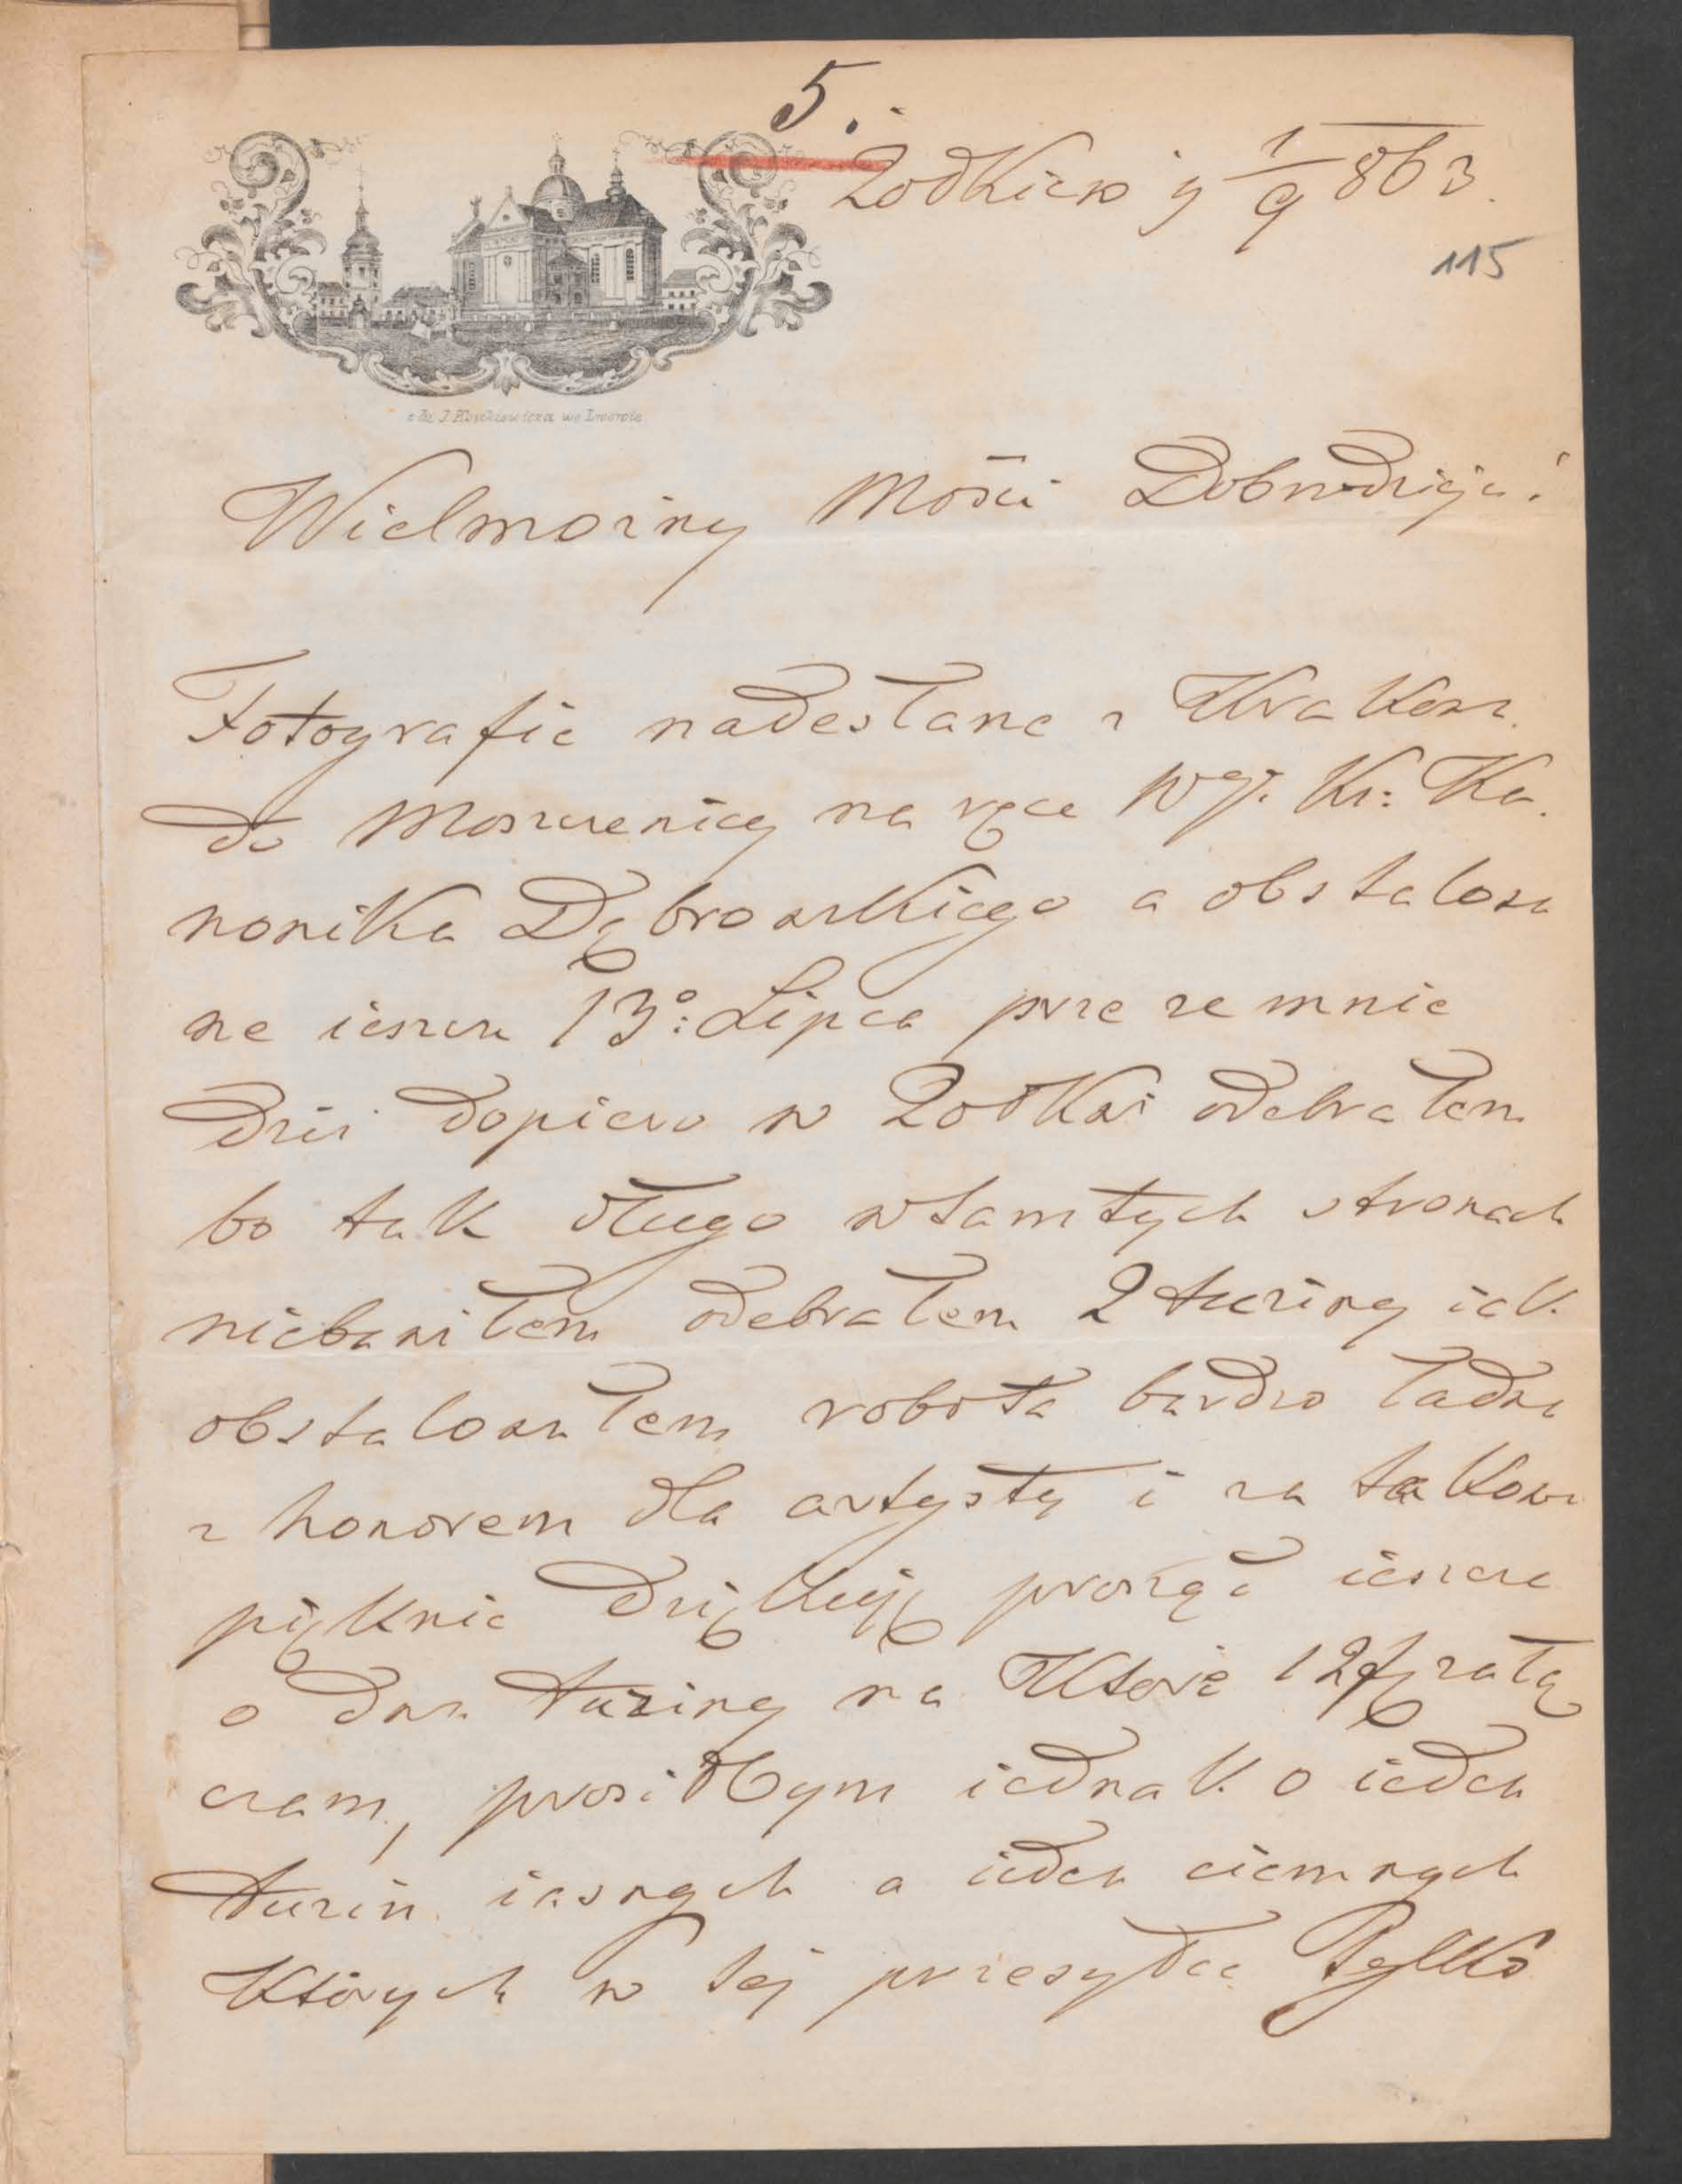 5.
Żółkiew 1/9 863.
115
we Lwowie
Wielmożny Mości Dobrodzieju!
Fotografie nadesłane z Krakowa
do Moszczenicy na ręce Wgo. Ks: Ka.
nonika Dąbrowskiego a obstalowa
ne ieszcze 13o: Lipca prze ze mnie
dziś dopiero w Żółkwi odebrałem
bo tak długo w tamtych stronach
niebawiłem odebrałem 2 tuziny iak
obstalowałem robota bardzo ładna
z honorem dla artysty i za takowe
pięknie dziękuję prosząc ieszcze
o dwa tuziny na które 12 załą
czam, prosiłbym iednak o ieden
tuzin iasnych a ieden ciemnych
których w tej przesyłce tylko